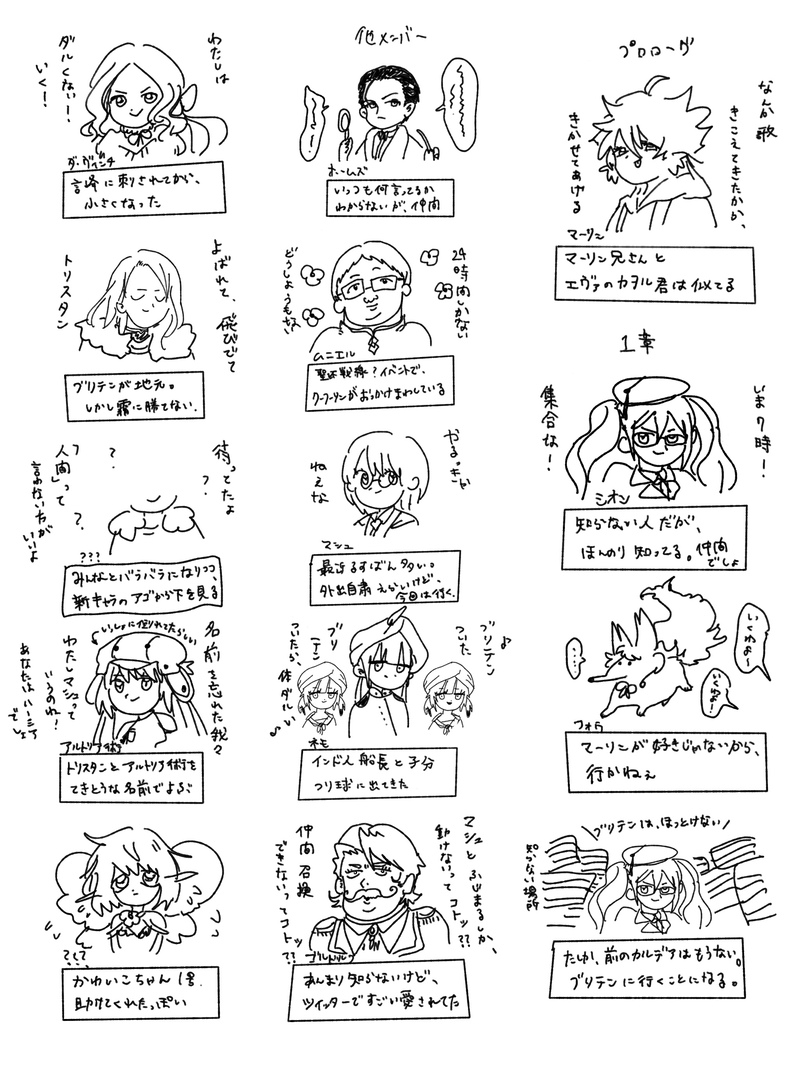 プロローグ
なんか歌
きこえてきたかか、
きかせてあげる
マーリン
マーリン兄さんと
エヴァのカヲル君は似てる
1章
いま7時!
集合な!
シオン
知らない人だが、
ほんのり知ってる。仲間
でしょ
いくわよ〜
いくわよ
・・・・
フォウ
マーリンが好きじゃないから、
行かねぇ
ブリテンは、ほっとけない
知らない場所
たしか、前のカルデアはもうない。
ブリテンに行くことになる。
他メンバー
ホームズ
いっつも何言ってるか
わからないが、仲間
24時間しかない
どうしようもない
ムニエル
聖杯戦線?イベントで、
クーフーリンがおっかけまわしている
やるっきゃ
ねぇな
マシュ
最近るすばん多い。
外出自粛えらいけど、
今回は行く。
♪
ブリテン
ついた
ブリ
テン
ついたら、
体ダルい
ネモ
インド人船長と子分
つり球に出てきた
マシュとふじまるしか、
動けないってコトッ??
仲間召喚
できないってコトッ??
ゴルドルフ
あんまり知らないけど、
ツイッターですごい愛されてた
わたしは
ダルくないー!
いく!
ダ・ヴィンチ
言峰に刺されてから、
小さくなった
よばれて、飛びでて
トリスタン
ブリテンが地元。
しかし霧に勝てない。
待ってたよ
?
?
?
?
人間って
言わない方が
いいよ
???
みんなとバラバラになりつつ、
新キャラのアゴから下を見る
いっしょに倒れてたらしい
名前を忘れた我々
わたしマシュって
いうのね!
あなたはハーシェア
でしょ
アルトリア術
トリスタンとアルトリア術を
てきとうな名前でよぶ
?????
かわいこちゃん1号
助けてくれたっぽい